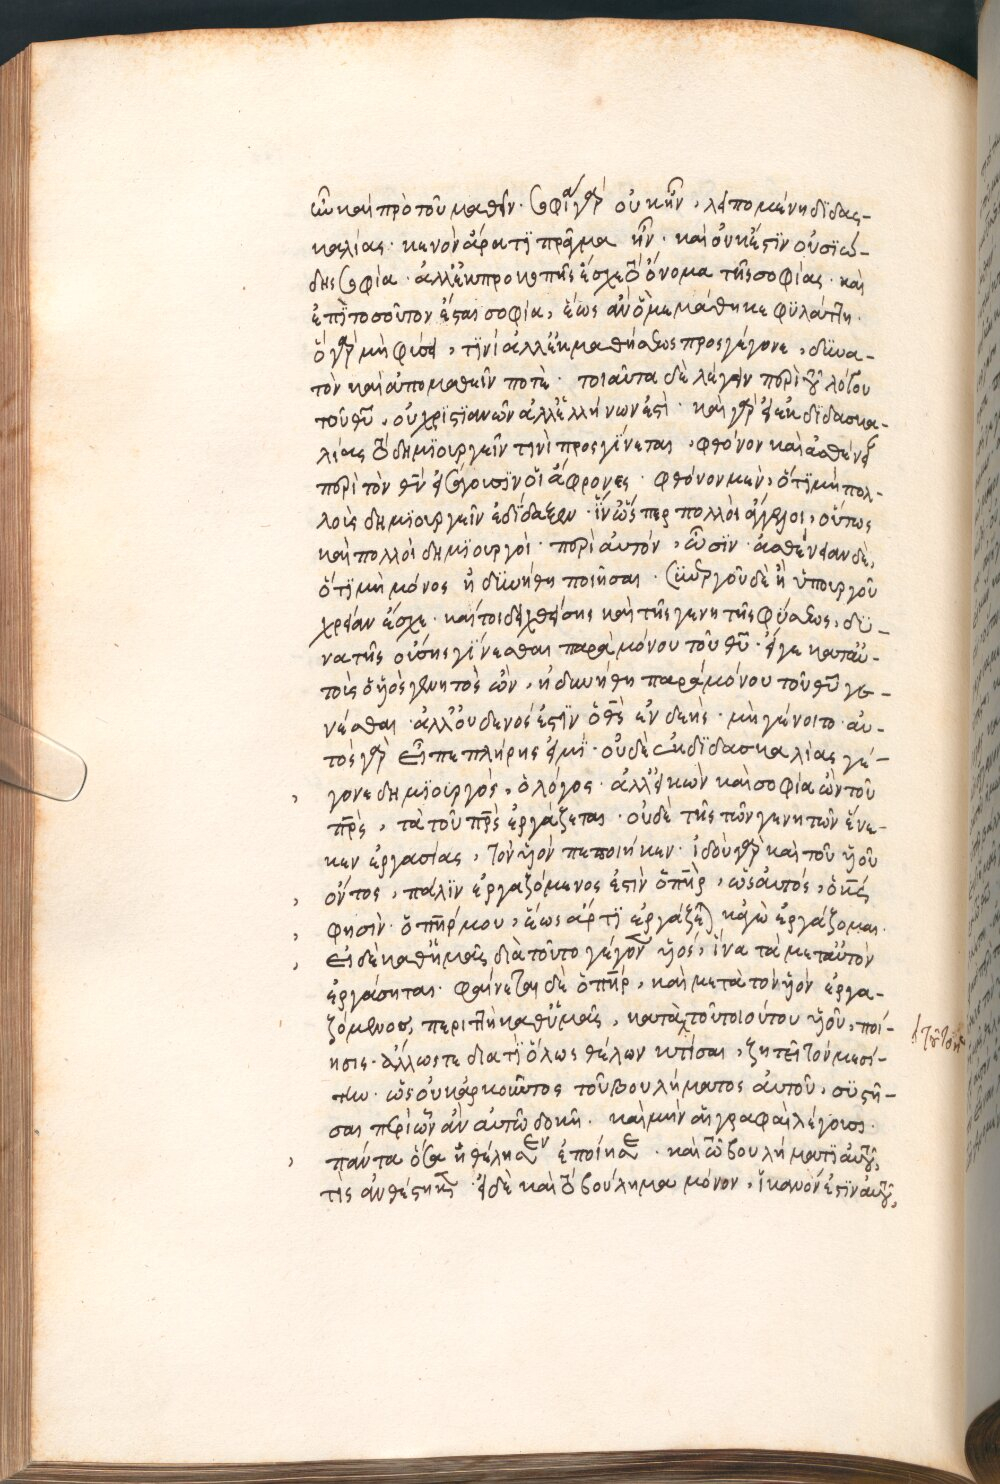 ὢν καὶ πρὸ τοῦ μαθεῖν· σοφία γὰρ οὐκ ἦν, λειπομένη διδασ-
καλίας· κενὸν ἄρα τϊ πρᾶγμα ἦν· καὶ οὐκ ἔστϊν οὐσϊώ-
δης σοφία· ἀλλ' ἐκ προκοπῆς ἔσχε τὸ ὄνομα τῆς σοφίας· καὶ
ἐπῒ τοσοῦτον ἔσται σοφία, ἕως ἂν ὃ μεμάθηκε φϋλάττη·
ὃ γὰρ μὴ φύσει, τϊνὶ ἀλλ' ἐκ μαθήσεως προσγέγονε, δϋνα-
τὸν καὶ ἀπομαθεῖν ποτὲ· τοιαῦτα δὲ λέγειν περὶ τοῦ λόγου
τοῦ θῦ, οὐ χριστϊανῶν ἀλλ' ἑλλήνων ἐστὶ· καὶ γὰρ εἰ ἐκ δϊδασκα-
λίας τὸ δημϊουργεῖν τινὶ προσγίνεται, φθόνον καὶ ἀσθένειαν
περὶ τὸν θν̄ εἰσάγουσϊν οἱ ἄφρονες· φθόνον μὲν, ὅτϊ μὴ πολ-
λοὺς δημϊουργεῖν ἐδίδαξεν· ἵν' ὥσπερ πολλοὶ ἄγγελοι, οὕτως
καὶ πολλοὶ δημϊουργοὶ· περὶ αὐτόν, ὦσϊν· ἀσθένειαν δὲ,
ὅτϊ μὴ μόνος ἠδϋνήθη ποιῆσαι· συνεργοῦ δὲ ἢ ὑπουργοῦ
χρείαν ἔσχε· καίτοι δειχθείσης καὶ τῆς γενητῆς φύσεως, δϋ-
νατῆς οὔσης γίνεσθαι παρὰ μόνου τοῦ θῦ· εἴγε κατ' αὐ-
τοὺς ὁ υἱὸς γενητὸς ὢν, ἠδυνήθη παρὰ μόνου τοῦ θῦ γε-
νέσθαι· ἀλλ' οὐδενός ἐστϊν ὁ θς̄ ἐνδεὴς· μὴ γένοιτο· αὐ-
τὸς γὰρ εἶπε πλήρης εἰμϊ· οὐδὲ ἐκ δϊδασκαλίας γέ-
γονε δημϊουργὸς, ὁ λόγος· ἀλλ' εἰκὼν καὶ σοφία ὢν τοῦ
πρ̄ς, τὰ τοῦ πρ̄ς ἐργάζεται· οὐδὲ τῆς τῶν γενητῶν ἕνε-
κεν ἐργασίας, τὸν υἱὸν πεποιήκεν· ἰδοὺ γὰρ καὶ τοῦ υἱοῦ
ὄντος, πάλϊν ἐργαζόμενος ἐστὶν ὁ πηρ̄, ὡς αὐτός, ὁ κς̄
φησὶν· ὁ πηρ̄ μου, ἕως ἄρτϊ ἐργάζεται κἀγὼ ἐργάζομαι·
εἰ δὲ καθ' ἡμᾶς διὰ τοῦτο γέγονεν υἱός, ἵνα τὰ μετ' αὐτὸν
ἐργάσηται· φαίνεται δὲ ὁ πηρ̄, καὶ μετὰ τὸν υἱὸν ἐργα-
ζόμενος, περιττὴ καθ' ὑμᾶς, κατὰ τοῦ τοιούτου υἱοῦ, ποί-
ησις· ἄλλως τε δια τϊ ὅλως θέλων κτίσαι, ζητεῖ τὸν μεσί-
την· ὡς οὐκ ἀρκοῦντος τοῦ βουλήματος αὐτοῦ, συστῆ-
σαι περὶ ὧν ἂν αὐτῶ δοκῆ· καὶ μὴν αἱ γραφαὶ λέγουσι·
πάντα ὅσα ἠθέλησεν ἐποίησεν· καὶ τῶ βουλήματϊ αὐτοῦ,
τὶς ἀνθέστηκεν· εἰ δὲ καὶ τὸ βούλημα μόνον, ἱκανόν ἐστϊν αὐτοῦ,